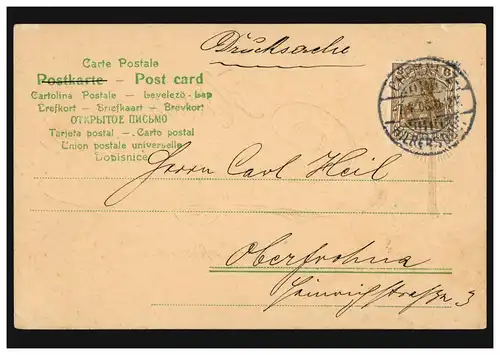 Drucksache
Carte Postale
Postkarte – Post card
Cartolina Postale – Levelezö-Lap
Brefkort – Briefkaart – Brevkort
ОТКРЫТОЕ ПИСЬМО
Tarjeta postal –. Carto postal
Union postale universelle
Dopisnice
Herrn Carl Heil
Oberfrohna
Heinrichstraße 3